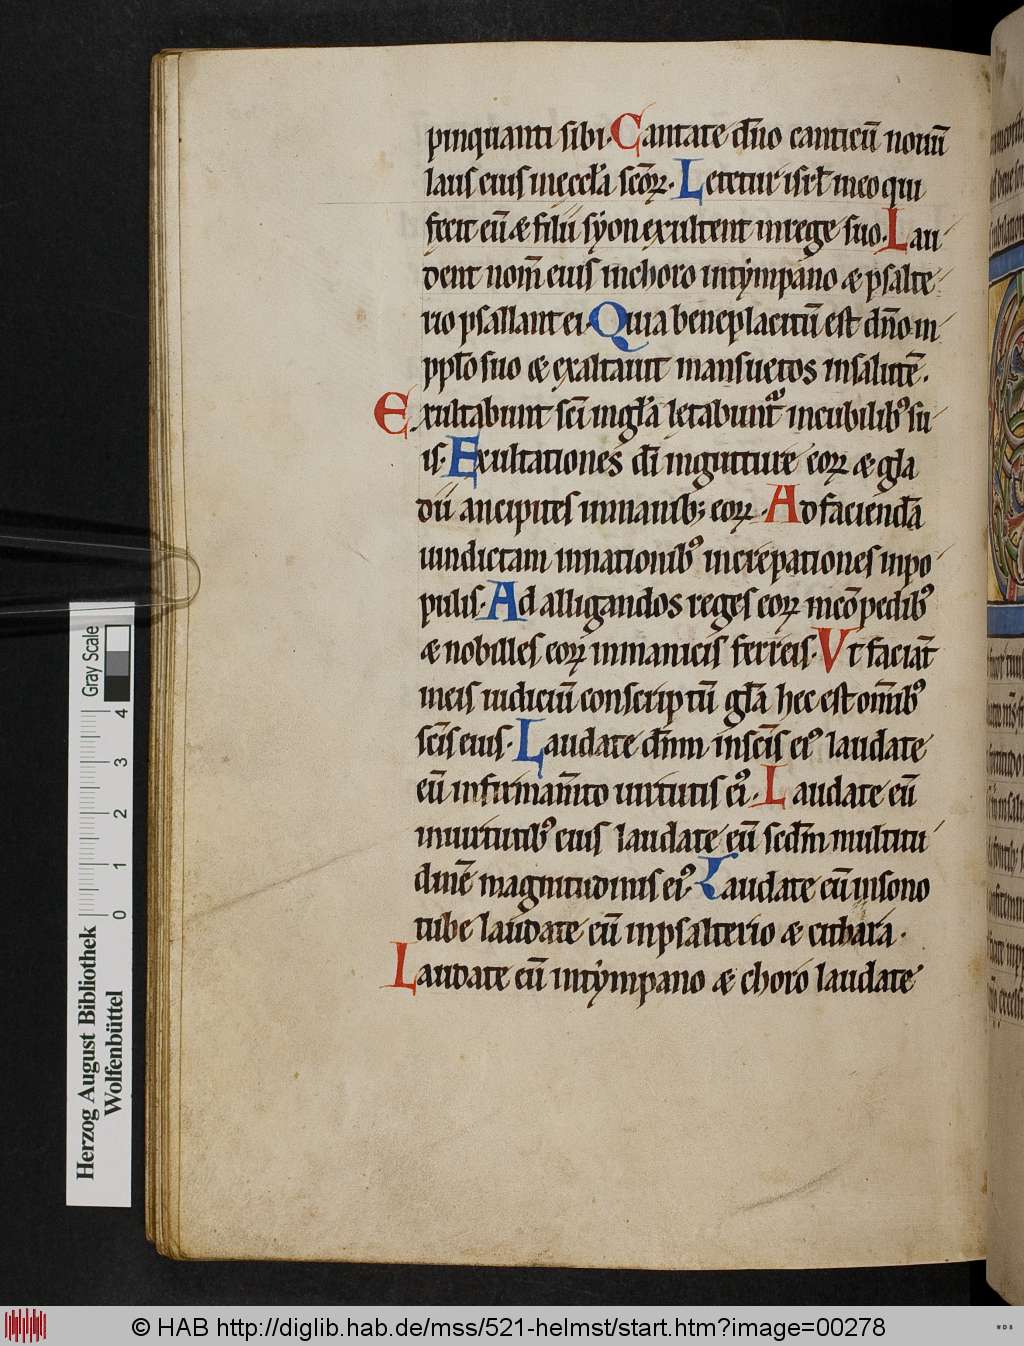 pinquanti sibi. Cantate dn̄o canticū nouū
laus eius in eccl̄a scōꝝ. Letetur isrl̄ in eo qui
fecit eū & filii syon exultent in rege suo. Lau
dent nom̄ eius in choro in tympano & psalte
rio psallant ei. Quia beneplacitū est dn̄o in
ppl̄o suo & exaltauit mansuetos in salutē.
Exultabunt sc̄i in gl̄a letabunt᷑ in cubilibꝰ su
is. Exultationes dī in gutture eoꝝ & gla
dii ancipites in manibꝫ eoꝝ. Ad faciendā
uindictam in nationibꝰ increpationes in po
pulis. Ad alligandos reges eoꝝ in cōpedibꝰ
& nobilles eoꝝ in manicis ferreis. Vt faciāt
in eis iudiciū conscriptū gl̄a hec est om̄ibꝰ
sc̄is eius. Laudate dn̄m in sc̄is eiꝰ laudate
eū in firmam̄to uirtutis eiꝰ. Laudate eū
in uirtutibꝰ eius laudate eū secd̄m multitu
dinē magnitudinis eiꝰ. Laudate eū in sono
tube laudate eū in psalterio & cithara.
Laudate eū in tympano & choro laudate
Gray Scale
0 1 2 3 4
Herzog August Bibliothek
Wolfenbüttel
© HAB http://diglib.hab.de/mss/521-helmst/start.htm?image=00278